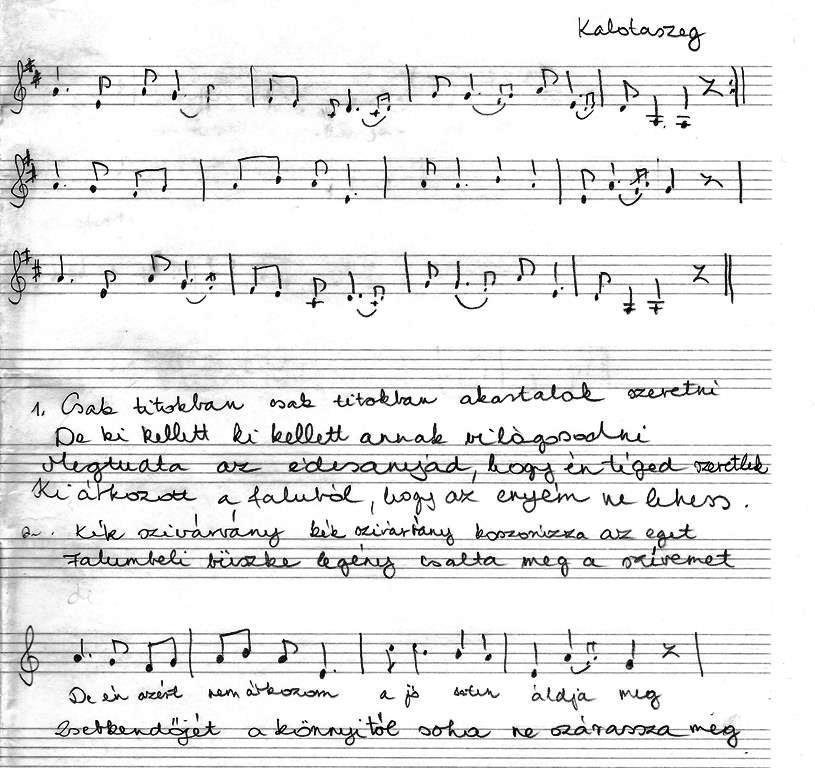 Kalotaszeg
1. Csak titokban csak titokban akartalak szeretni
De ki kellett ki kellett annak világosodni
Megtudta az édesanyád, hogy én téged szeretlek
Ki átkozott a faluból, hogy az enyém ne lehess.
2. Kék szivárvány kék szivárvány koszorúzza az eget
Falumbeli büszke legény csalta meg a szívemet
De én azért nem átkozom a jó isten áldja meg
Zsebkendőjét a könnyitől soha ne szárassza meg